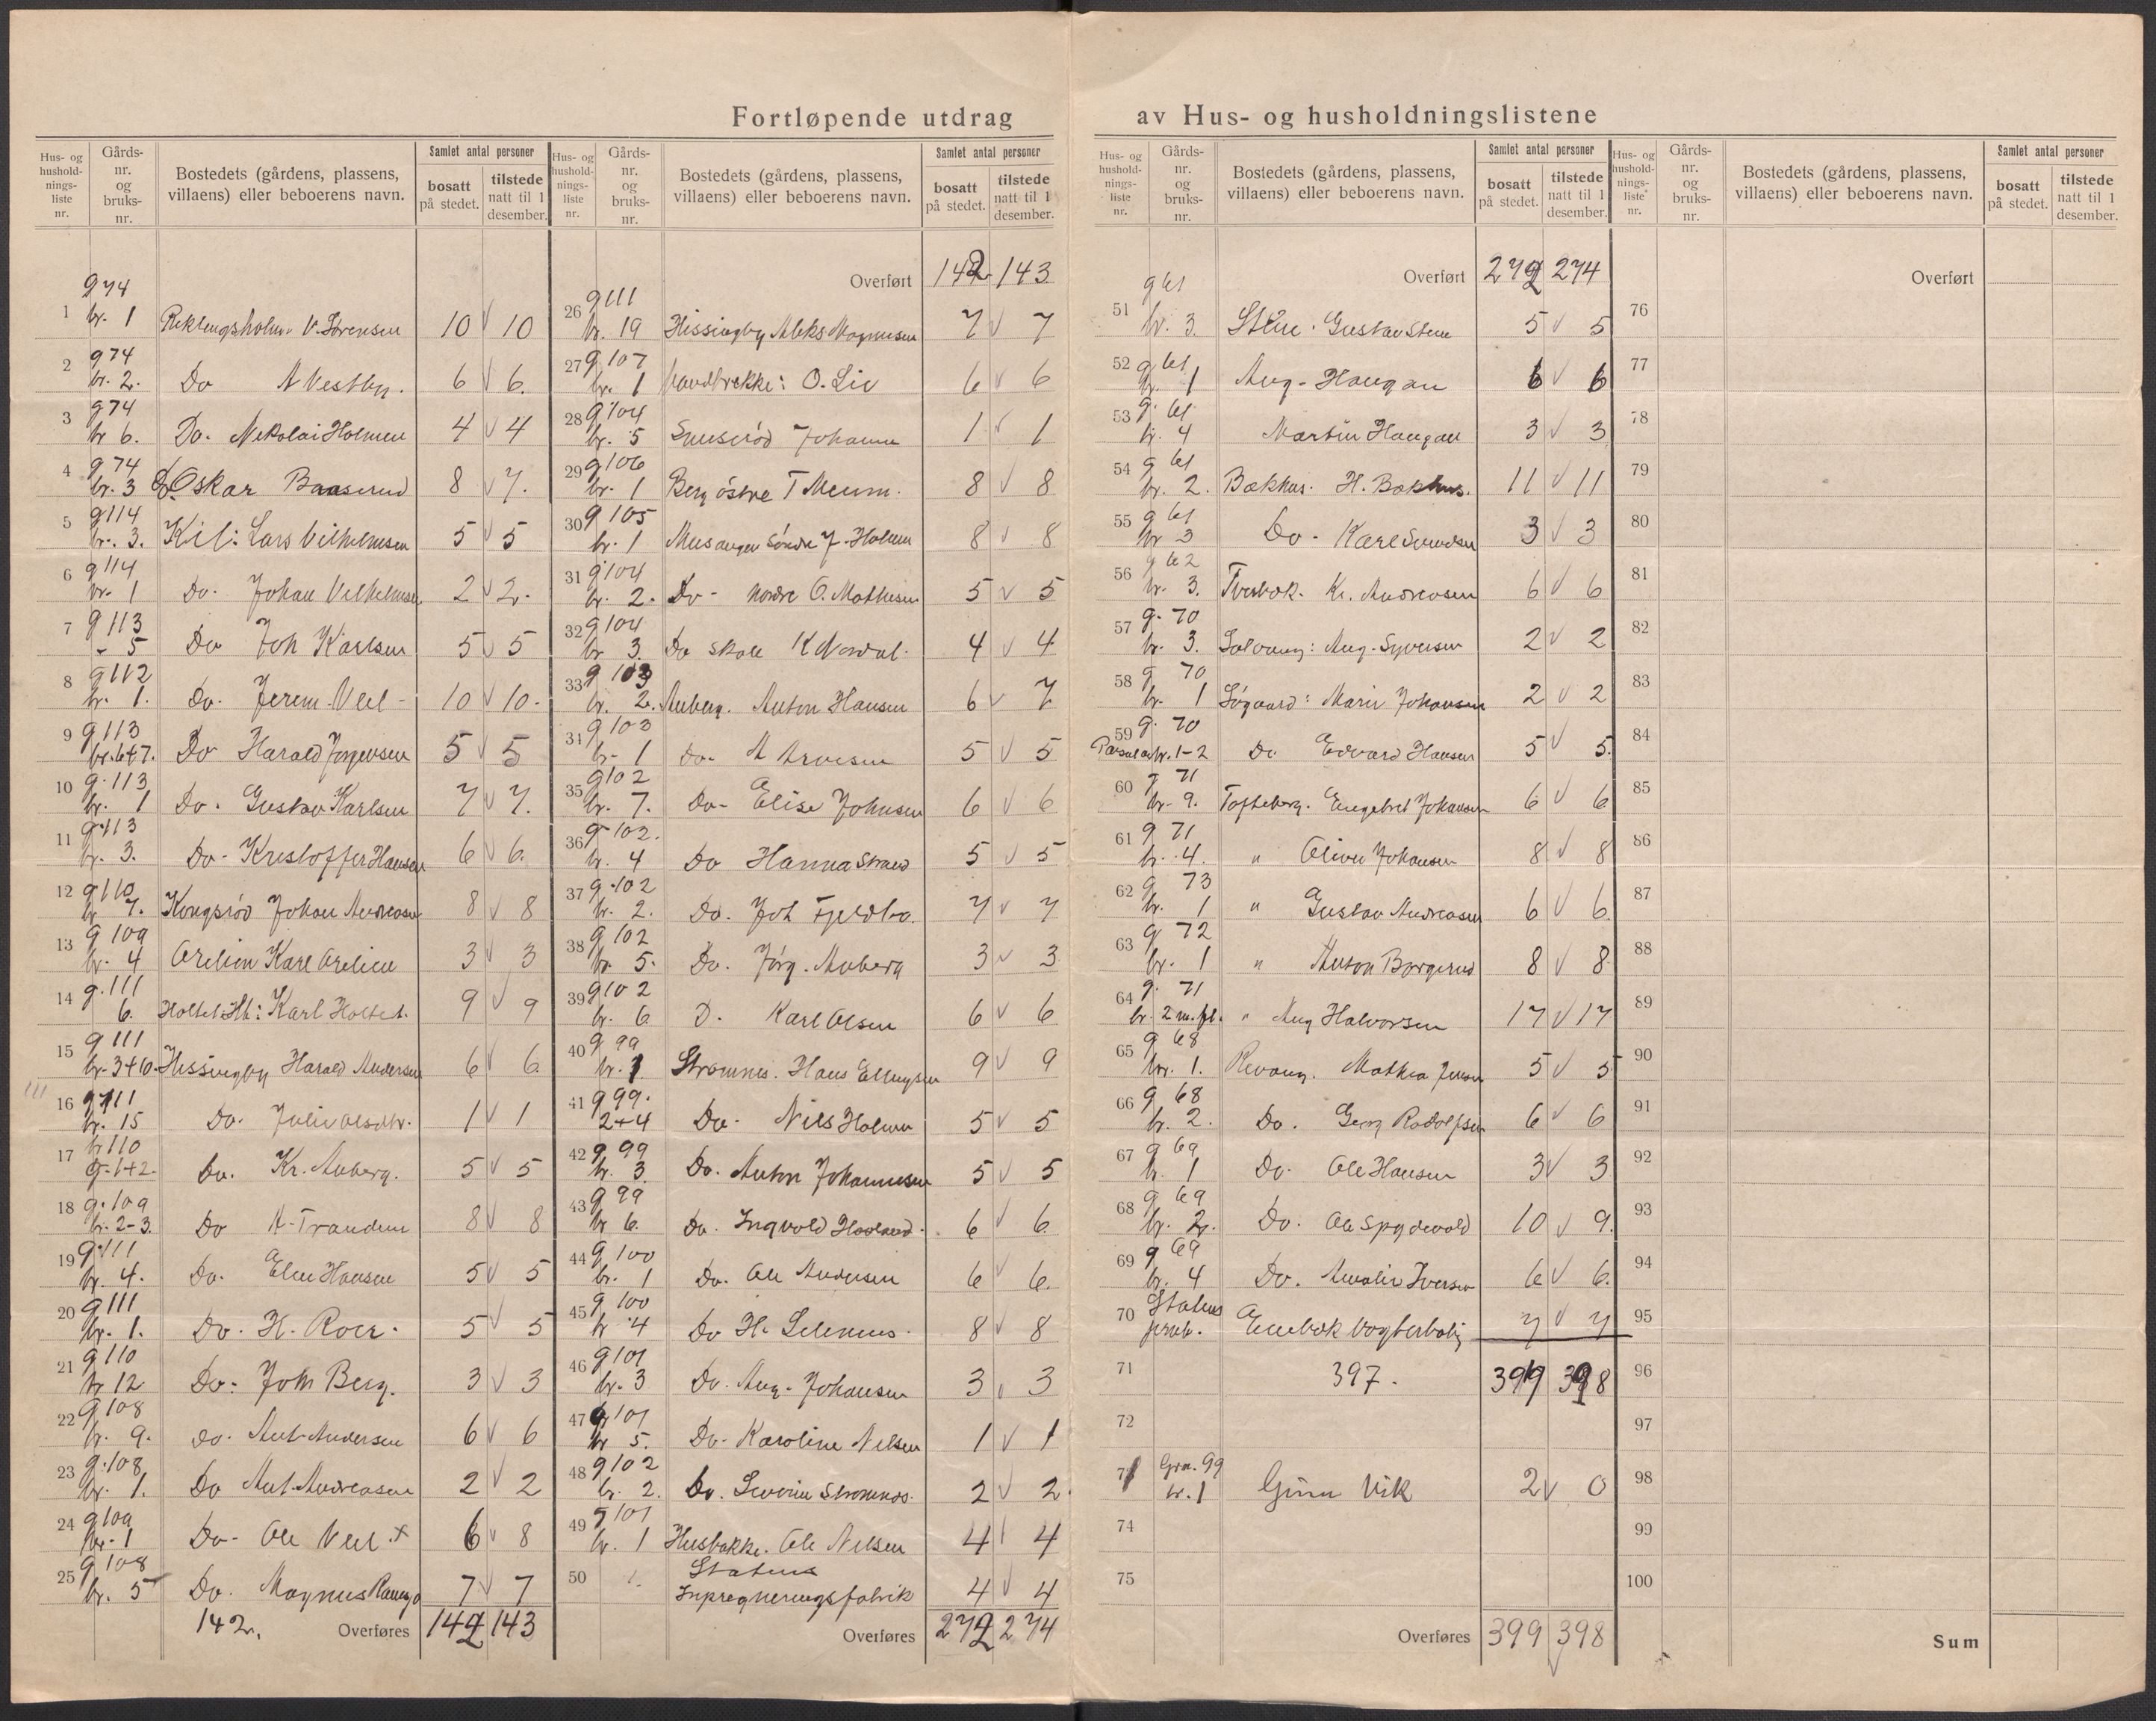 Fortløpende utdrag av Hus- og husholdningslistene
Hus- og hushold- nings- liste nr.
Gårds- nr. og bruks- nr.
Bostedets (gårdens, plassens, villaens) eller beboerens navn.
Samlet antal personer
bosatt på stedet.
tilstede natt til 1 desember.
1 g 74 br. 1 V. Sørensen 10 v 10
2 g 74 br. 2. Do N Vestby. 6 v 6.
3 g 74 br 6. Do. Nekolai Holmen 4 v 4
4 g 74 br. 3 Do Oskar Baaserud 8 v 7.
5 g 114 br. 3. Kil: Lars Vilhelmsen 5 v 5
6 g 114 br. 1 Do. Johan Vilhelmsen 2 v 2.
7 g 113 - 5 Do Joh Karlsen 5 v 5
8 g 112 br. 1. Do. Jerem. Veel - 10 v 10-
9 g 113 br. 6+7. Do Harald Jørgensen 5 v 5
10 g. 113 br. 1 Do. Gustav Karlsen 7 v 7.
11 g. 113 br. 3. Do- Kristoffer Hansen 6 v 6.
12 g 110 br 7. Kongsrød Johan Andreasen 8 v 8
13 g 109 br. 4 Orelien Karl Orelien 3 v 3
14 g. 111 6. Holtet Ht: Karl Holtet. 9 v 9
15 g 111 br. 3+10. Hissingby Harald Andersen 6 v 6
16 g 111 br. 15 Do. Julie Olsdtr. 1 v 1
17 br 110 g- 1+2- Do. Kr. Auberg. 5 v 5
18 g. 109 br. 2-3. Do K- Tranden 8 v 8
19 g. 111 br. 4. Do. Elen Hansen 5 v 5
20 g 111 br. 1. Do. H. Roer. 5 v 5
21 g 110 br 12 Do: Joh Berg. 3 v 3
22 g 108 br. 9. Do. Ant Andersen 6 v 6
23 g. 108 br. 1. Do Ant. Andreasen 2 v 2
24 g 109 br. 1 Do- Ole Veel x 6 v 8
25 g 108 br. 5 Do. Magnus 7 v 7
142. Overføres 142 143
Hus- og hushold- nings- liste nr.
Gårds- nr. og bruks- nr.
Bostedets (gårdens, plassens, villaens) eller beboerens navn.
Samlet antal personer
bosatt på stedet.
tilstede natt til 1 desember.
Overført 142 143
26 g 111 br. 19 Hissingby Aleks Magnusen 7 v 7
27 g 107 br. 1 O. Lie 6 v 6
28 g 104 br. 5 Johanne 1 v 1
29 g 106 br. 1 Berg østre T Meum. 8 v 8
30 g 105 br. 1 Søndre J. Holmen 8 v 8
31 g 104 br. 2. Do- nordre O. Mathisen 5 v 5
32 g 104 br 3. Do skole K Nordal. 4 v 4
33 g 103 br. 2. Auberg. Anton Hansen 6 v 7
34 g 103 br- 1 Do- A Arvesen 5 v 5
35 g 102 br. 7. Do- Elise Johnsen 6 v 6
36 g- 102. br. 4 Do Hanna Strand 5 v 5
37 g. 102 br. 2. Do. Joh Fjeldbo. 7 v 7
38 g 102 br. 5. Do. Jørg. Auberg 3 v 3
39 g 102 br. 6 D. Karl Olsen 6 v 6
40 g 99 br. 1 Strømnes. Hans Ellingsen 9 v 9
41 g 99. 2+4 Do. Nils Holmen 5 v 5
42 g 99 br. 3. Do. Anton Johannesen 5 v 5
43 g 99 br 6. Do. Ingvald 6 v 6
44 g 100 br. 1 Do. Ole Andersen 6 v 6.
45 g 100 br 4 Do H. 8 v 8
46 g 101 br. 3 Do. Aug. Johansen 3 v 3
47 g 101 br 5. Do- Karoline Nilsen 1 v 1
48 g 102 br. 2. Do. Severin Strømnes. 2 v 2.
49 g 101 br. 1 Husbakke. Ole Nilsen 4 4
50 1. Statens Inpregneringsfabrik 4 v 4
Overføres 272 274
Hus- og hushold- nings- liste nr.
Gårds- nr. og bruks- nr.
Bostedets (gårdens, plassens, villaens) eller beboerens navn.
Samlet antal personer
bosatt på stedet.
tilstede natt til 1 desember.
Overført 272 274
51 g 61 br. 3. Stene. Gustav Stene 5 v 5
52 g 61 br. 1 Aug- Haugan 6 v 6
53 g. 61 br. 4 Martin Haugan 3 v 3
54 g 61 br. 2. Bakhus. H. Bakhus. 11 v 11
55 g 61 br 3 Do- Karl 3 v 3
56 g 62 br. 3. Tverbæk. Kr. Andreasen 6 v 6
57 g. 70 br. 3. Solvang: Aug. Syversen 2 v 2
58 g 70 br. 1 Søgaard: Marie Johansen 2 v 2
59 g. 70 br. 1-2 Do Edvard Hansen 5 v 5.
60 g 71 br. 9. Tofteberg. Engebret Johansen 6 v 6
61 g 71 br. 4. " Oliver Johansen 8 v 8
62 g 73 br. 1 " Gustav Andreasen 6 v 6.
63 g 72 br. 1 " Anton Borgerud 8 v 8
64 g. 71 br. 2 m. fl. " Aug Halvorsen 17 v 17
65 g 68 br. 1. Revaug. Mathea Jensen 5 v 5
66 g 68 br. 2. Do. Georg Rodolfsen 6 v 6
67 g 69 br. 1 Do. Ole Hansen 3 v 3
68 g 69 br. 2. Do. Ole Spydevold 10 v 9.
69 g 69 br. 4 Do. Amalie Iversen 6 v 6.
70 Statens jernb. Eenebæk Vogterbolig 7 v 7
71 397. 399 398
72
73 Grn. 99 br. 1 Grim Vik 2 v 0
74
75
Overføres 399 398
Hus- og hushold- nings- liste nr.
Gårds- nr. og bruks- nr.
Bostedets (gårdens, plassens, villaens) eller beboerens navn.
Samlet antal personer
bosatt på stedet.
tilstede natt til 1 desember.
Overført
76
77
78
79
80
81
82
83
84
85
86
87
88
89
90
91
92
93
94
95
96
97
98
99
100
Sum